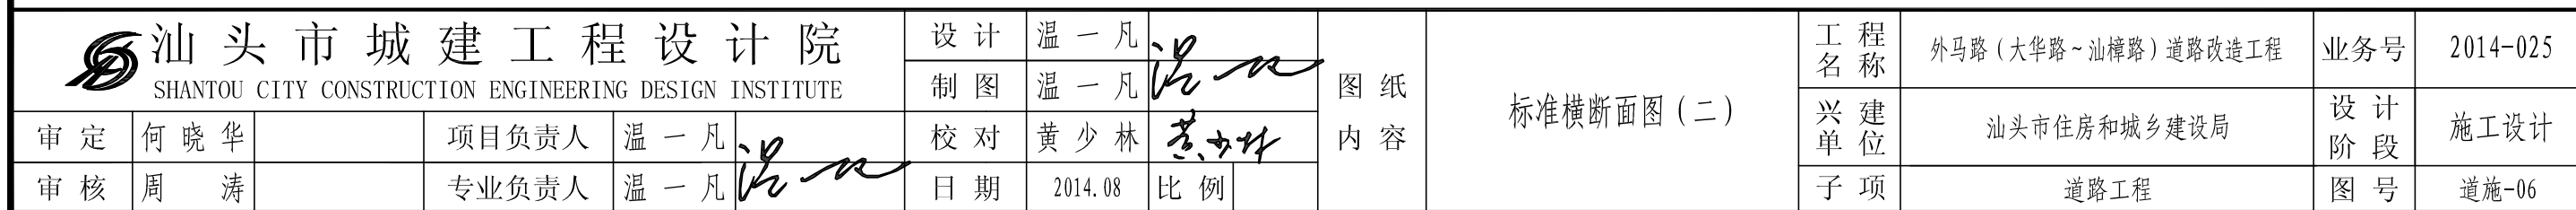 汕头市城建工程设计院
SHANTOU CITY CONSTRUCTION ENGINEERING DESIGN INSTITUTE
审定 何晓华 项目负责人 温一凡
审核 周涛 专业负责人 温一凡
设计 温一凡
制图 温一凡
校对 黄少林 黄少林
日期 2014.08 比例
图纸内容 标准横断面图（二）
工程名称 外马路（大华路~汕樟路）道路改造工程 业务号 2014-025
兴建单位 汕头市住房和城乡建设局 设计阶段 施工设计
子项 道路工程 图号 道施-06